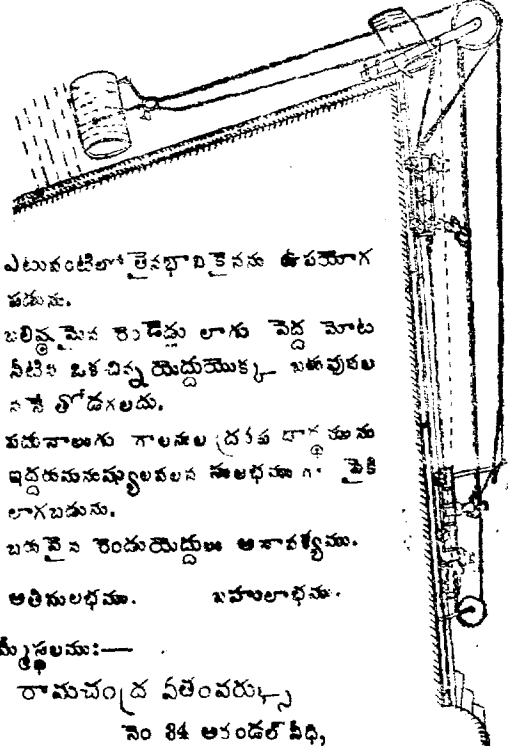 ఎటువంటిలోతైనభావికైనను ఉపయోగ
పడును.
బలిష్ఠమైన రెండెద్దు లాగు పెద్ద మోట
నీటిని ఒకచిన్న యెద్దుయొక్క బళువువల
ననే తోడగలదు.
పదునాలుగు గాలనుల ద్రవప దార్థమును
ఇద్దరుమనుష్యులవలన సులభముగా పైకి
లాగబడును.
బరువైన రెండుయెద్దులు అనావశ్యము.
అతిసులభము. బహులాభము.
రామచంద్ర
నెం 84 వీధి,